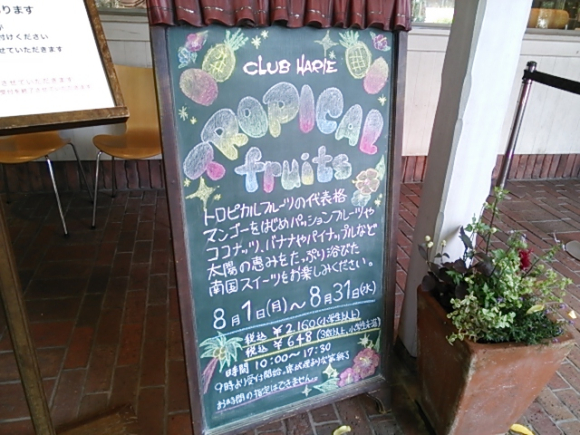 ります
付けください
せていただきます
CLUB HARIE
TROPICAL
fruits
トロピカルフルーツの代表格
マンゴーをはじめパッションフルーツや
ココナッツ、バナナやパイナップルなど
太陽の恵みをたっぷり浴びた
南国スイーツをお楽しみください。
8月1日(月)〜8月31日(水)
税込 ¥2,160(小学生以上)
税込 ¥648(3歳以上、小学生未満)
時間 10:00〜17:30
9時より受付開始。
お時間の指定はできません